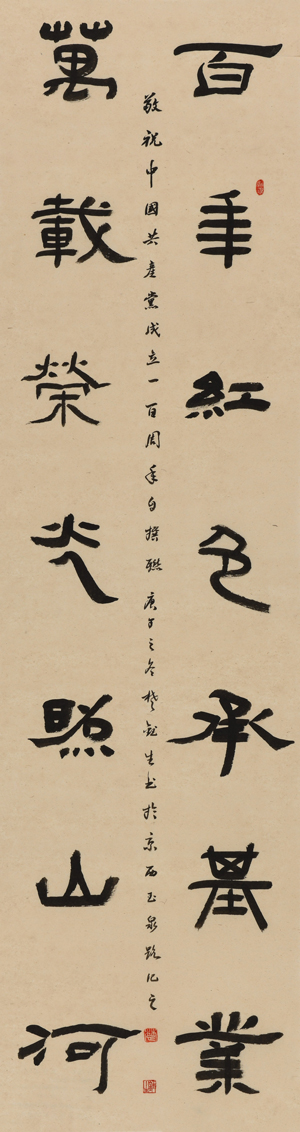 百年紅色承基業
萬載榮光照山河
敬祝中國共產黨成立一百周年自撰聯 庚子之冬楚 生书於京西玉泉路記之